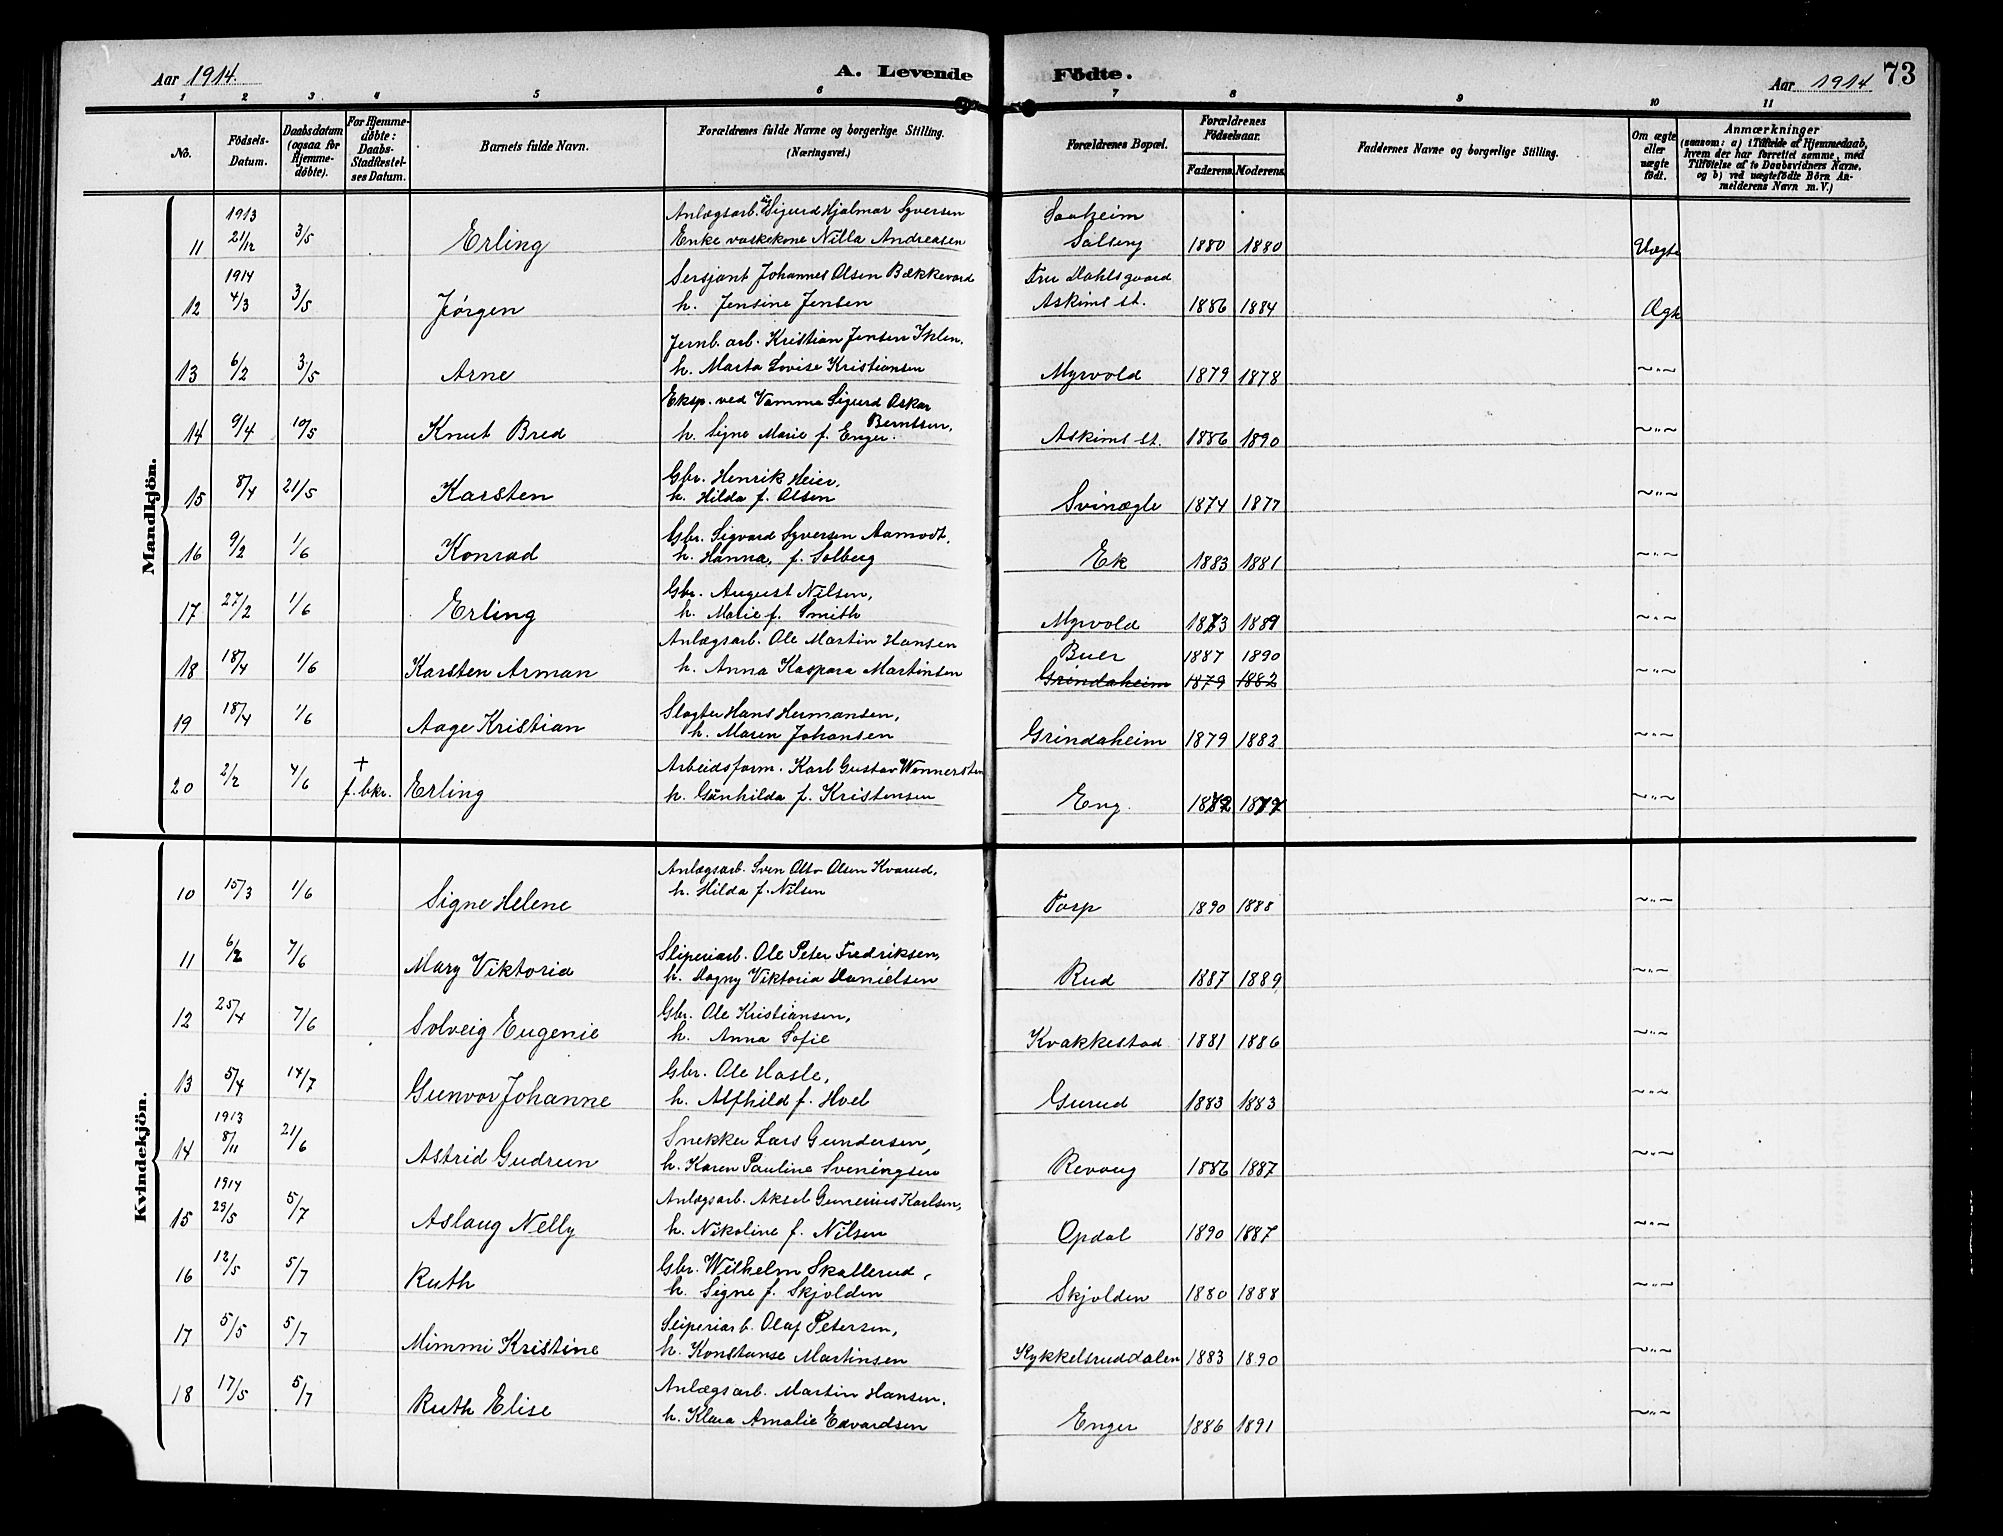 Aar 1914.
A. Levende Födte.
Aar 1914
73
1 2 3 4 5 6 7 8 9 10 11
No.
Födsels-Datum.
Daabsdatum (ogsaa for Hjemme-döbte).
For Hjemme-döbte: Daabs-Stadfæstelses Datum.
Barnets fulde Navn.
Forældrenes fulde Navne og borgerlige Stilling.
(Næringsvei.)
Forældrenes Bopæl.
Forældrenes Födselsaar.
Faderens Moderens
Faddernes Navne og borgerlige Stilling.
Om ægte eller uægte födt.
Anmærkninger
(saasom: a) i Tilfælde af Hjemmedaab,
hvem der har forrettet samme, med
Tilföielse af to Daabsvidners Navne,
og b) ved uægtefödte Börn An-
melderens Navn m. V.)
Mandkjön.
1913
Anlægsarb. Sigurd Hjalmar Syversen Saaheim
11 21/12 3/5 Erling Enke vaskekone Nilla Andreasen Solberg 1880 1880 Uægte
1914
Sersjant Johannes Olsen Bækkevard Fru Dahlsgaard
12 4/3 3/5 Jørgen h. Jensine Jensen Askims st. 1886 1884 Ægte
Jernb. arb. Kristian Jensen Ihlen,
13 6/2 3/5 Arne h. Marta Lovise Kristiansen Myrvold 1879 1878 ~"~
Eksp. ved Vamma Sigurd Oskar Berntsen,
14 9/4 10/5 Knut Bred h. Signe Marie f. Enger. Askims st. 1886 1890 ~"~
Gbr. Henrik Heier,
15 8/4 21/5 Karsten h. Hilda f. Olsen Svinægle 1874 1877 ~"~
Gbr. Sigvard Syversen Aamodt,
16 9/2 1/6 Konrad h. Hanna, f. Solberg Ek 1883 1881 ~"~
Gbr. August Nilsen,
17 27/2 1/6 Erling h. Marie f. Smith Myrvold 1873 1889 ~"~
Anlægsarb. Ole Martin Hansen Buer 1887 1890
18 18/4 1/6 Karsten Arman h. Anna Kaspara Martinsen Grindaheim 1879 1882 ~"~
Slagter Hans Hermansen,
19 18/4 1/6 Aage Kristian h. Maren Johansen Grindaheim 1879 1882 ~"~
+ Arbeidsform. Karl Gustav Wennersten
20 2/2 4/6 f. bkr. Erling h. Gunhilda f. Kristensen Eng. ~"~
Kvindekjön.
Anlægsarb. Sven Otto Olsen Kvarud,
10 15/3 1/6 Signe Helene h. Hilda f. Nilsen Torp 1890 1888 ~"~
Sliperiarb. Ole Peter Fredriksen,
11 6/2 7/6 Mary Viktoria h. Dagny Viktoria Danielsen Rud 1887 1889 ~"~
Gbr. Ole Kristiansen,
12 25/4 7/6 Solveig Eugenie h. Anna Sofie Kvakkestad 1881 1886 ~"~
Gbr. Ole Hasle,
13 5/4 14/7 Gunvor Johanne h. Alfhild f. Hoel Gurud 1883 1883 ~"~
1913
Snekker Lars Gundersen,
14 8/11 21/6 Astrid Gudrun h. Karen Pauline Sveningsen Revoug 1886 1887 ~"~
1914
Anlægsarb. Aksel Gunerius Karlsen,
15 29/5 5/7 Aslaug Nelly h. Nikoline f. Nilsen Opdal 1890 1887 ~"~
Gbr. Wilhelm Skallerud,
16 12/5 5/7 Ruth h. Signe f. Skjolden Skjolden 1880 1888 ~"~
Sliperiarb. Olaf Petersen,
17 5/5 5/7 Mimmi Kristine h. Konstanse Martinsen Kykkelsruddalen 1883 1890 ~"~
Anlægsarb. Martin Hansen,
18 17/5 5/7 Ruth Elise h. Klara Amalie Edvardsen Enger 1886 1891 ~"~